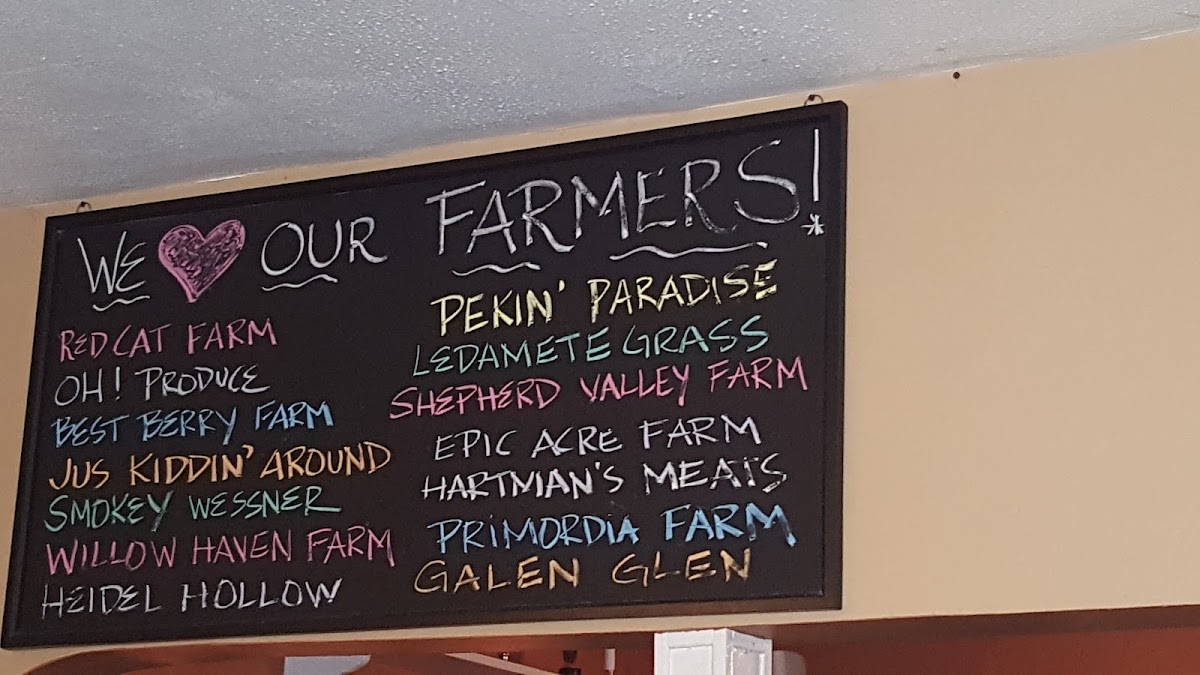 WE OUR FARMERS!
RED CAT FARM
OH! PRODUCE
BEST BERRY FARM
JUS KIDDIN' AROUND
SMOKEY WESSNER
WILLOW HAVEN FARM
HEIDEL HOLLOW
PEKIN' PARADISE
LEDAMETE GRASS
SHEPHERD VALLEY FARM
EPIC ACRE FARM
HARTMAN'S MEATS
PRIMORDIA FARM
GALEN GLEN